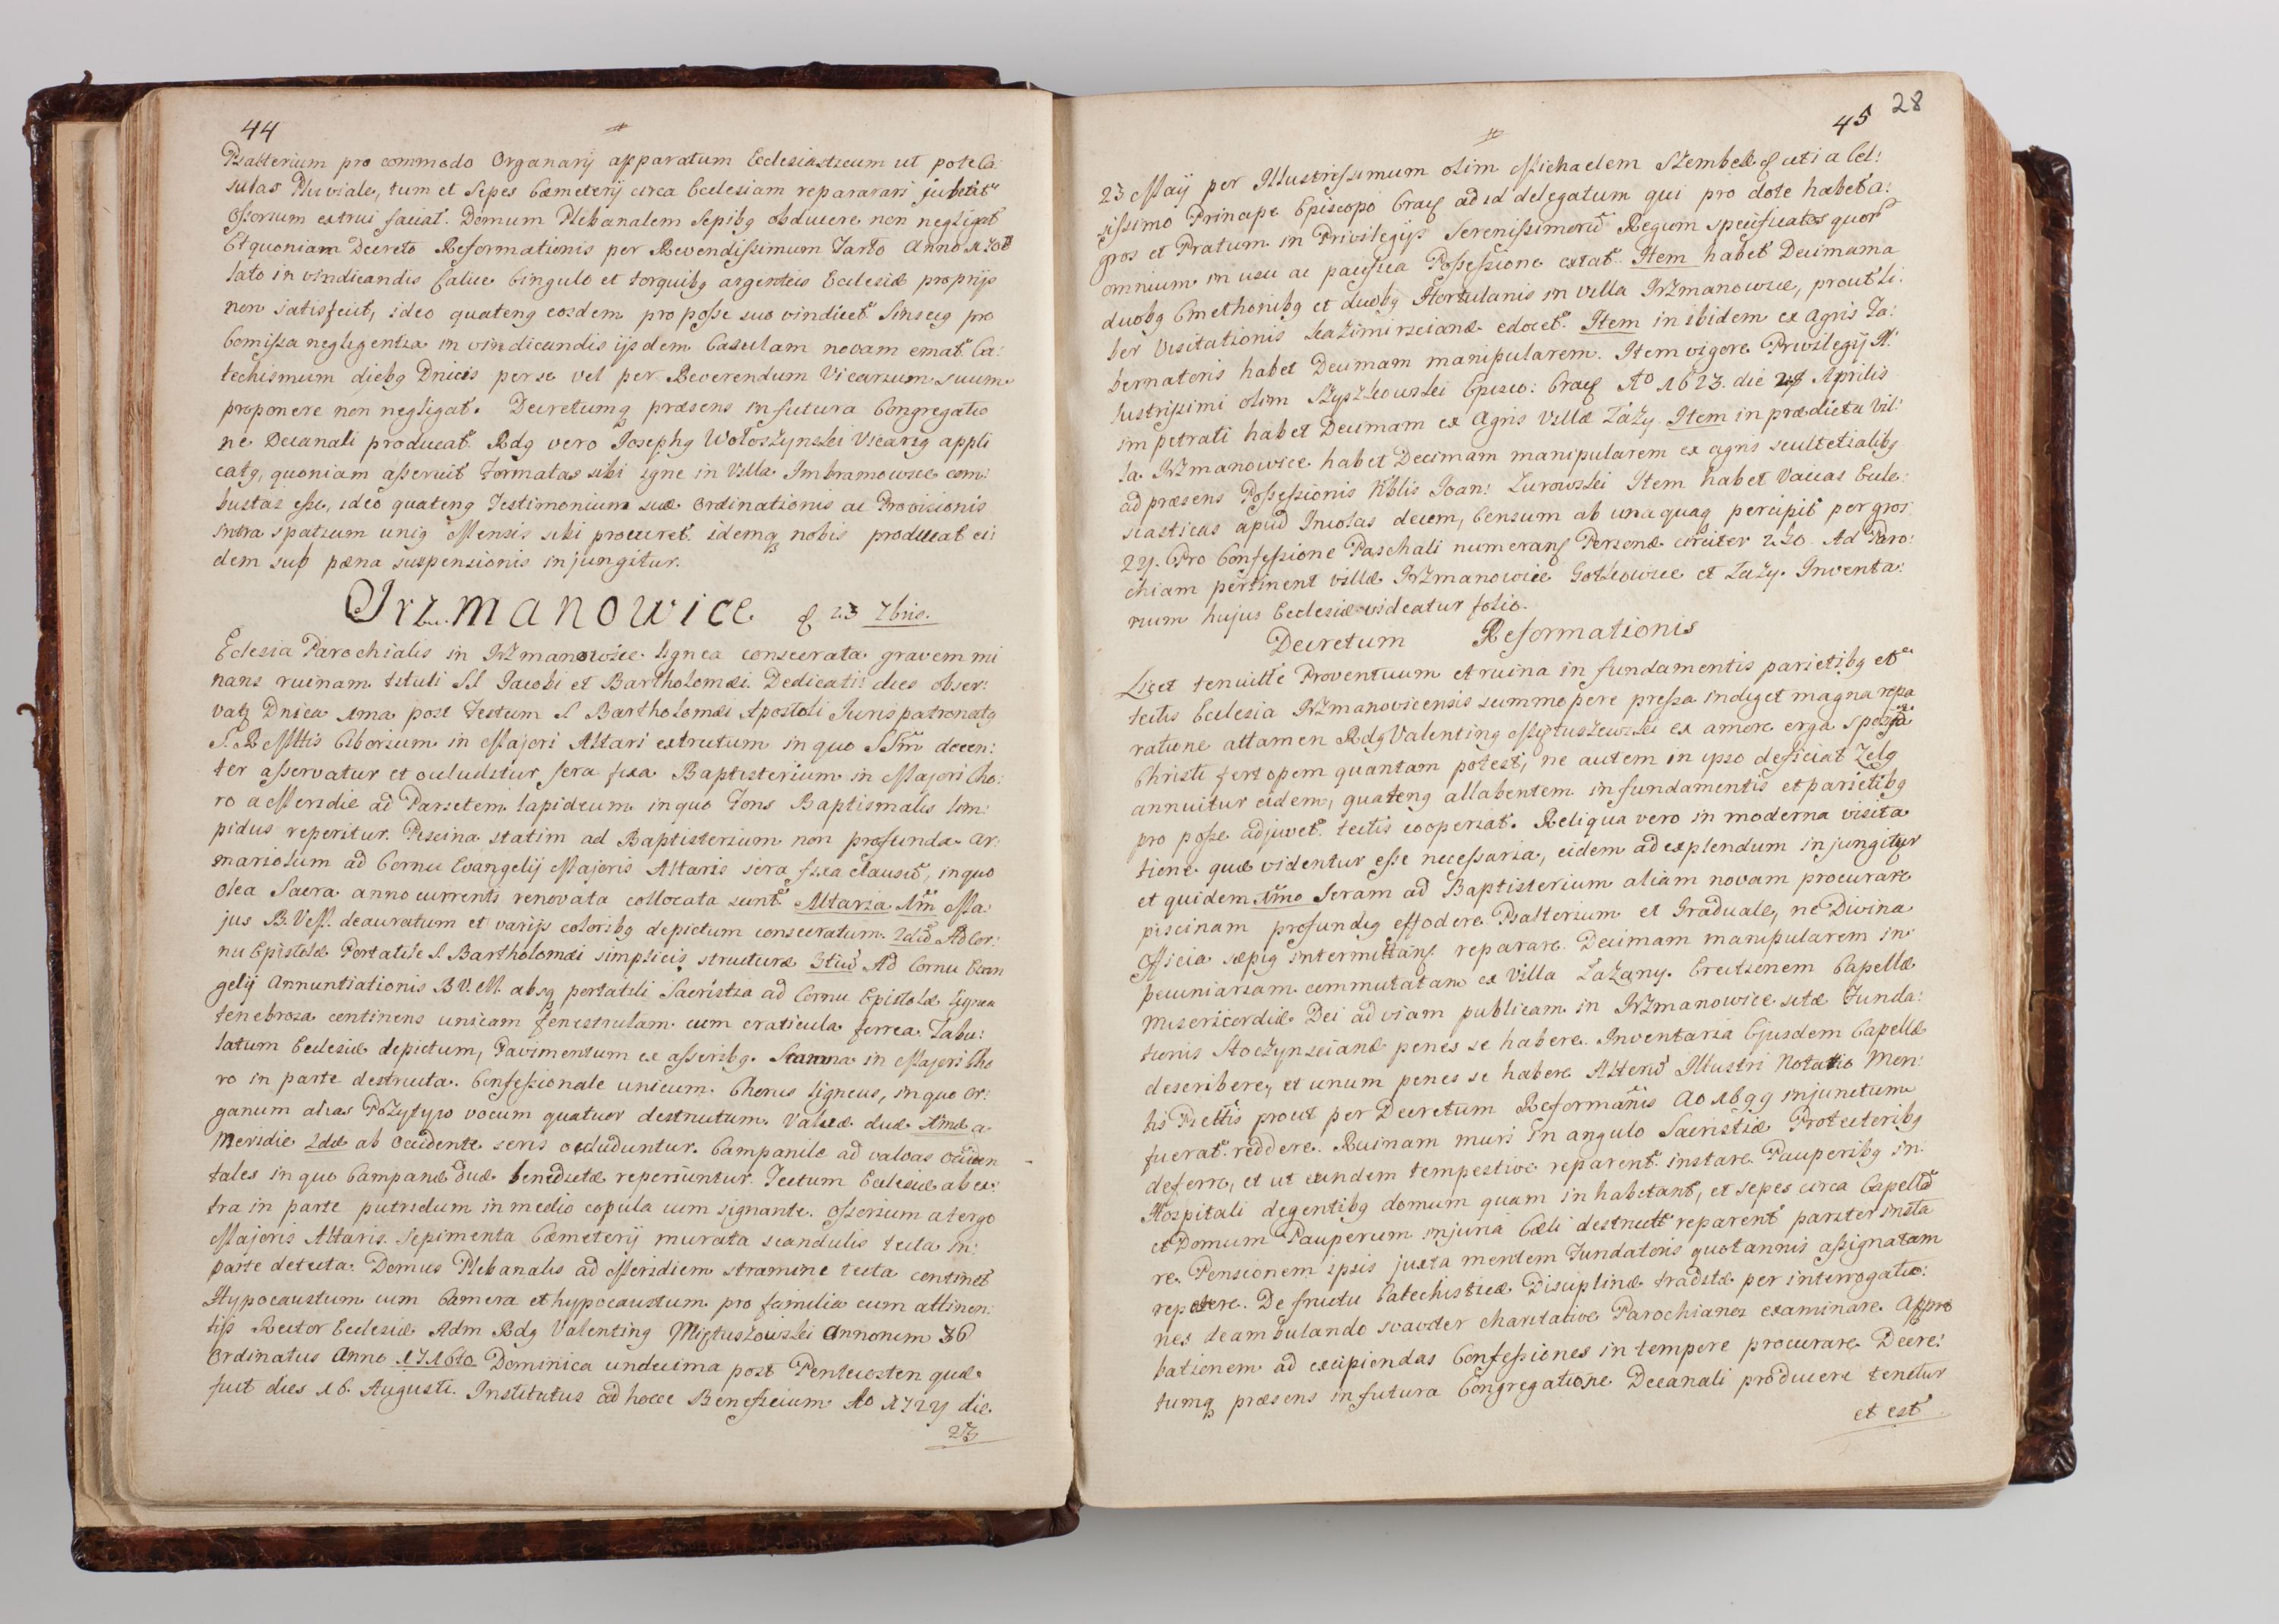 44
Psalterium pro commodo Organarij apparatum Ecclesiasticum ut pote Ca:
sulas Pluviale, tum et Sepes Cæmeterij circa Ecclesiam repararari jubeat
Ossorium extrui faciat. Domum Plebanalem Sepibq obducere non negligat
Et quoniam Decreto Reformationis per Revendissimum Tarło Anno
lato in vindicandis Calice Cingulo et torquibq argenteis Ecclesiæ proprijs
non satisfecit, ideo quatenq eosdem pro posse suo vindicet. Sinecq pro
Comissa negligentia in vindicandis ijsdem Casulam novam emat. Ca:
techismum diebq Dnicis per se vel per Reverendum Vicarium suum
proponere non negligat. Decretumq præsens in futura Congregatio
ne Decanali producat. Rdq vero Josephq Wołoszynski Vicariq appli
catq, quoniam asseruit Formatas sibi igne in Villa Imbramowice com:
bustas esse, ideo quatenq Testimonium suæ Ordinationis ac Provisionis
intra spatium uniq Mensis sibi procuret. idemq nobis producat ei
dem sub pæna suspensionis injungitur.
Irzmanowice. 23 7bris.
Eclesia Parochialis in Irzmanowice lignea consecrata gravem mi
nans ruinam tituli SS Jacobi et Bartholomæi. Dedicatis dies obser:
vatq Dnica 1ma post Festum S Bartholomæi Apostoli Jurispatronatq
S. R. Mttis Ciborium in Majori Altari extructum in quo SSm decen:
ter asservatur et ocluditur sera fixa Baptisterium in Majori Cho:
ro a Meridie ad Parietem lapideum in quo Fons Baptismalis lim:
pidus reperitur. Piscina statim ad Baptisterium non profunda. Ar:
mariolum ad Cornu Evangelij Majoris Altaris sera fixa clausũ, in quo
Olea Sacra anno currenti renovata collocata sunt. Altaria 1m Ma:
jus B. V. M. deauratum et varijs coloribq depictum consecratum. 2dũ Ad Cor:
nu Epistolæ Portatile S Bartholomæi simplicis structuræ 3tiũ Ad Cornu Evan
gelij Annuntiationis B V. M. absq portatili Sacristia ad Cornu Epistolæ lignea
tenebrosa continens unicam fenestrulam cum craticula ferrea. Tabu:
latum Ecclesiæ depictum, Pavimentum ex asseribq. Scamna in Majori Cho
ro in parte destructa. Confessionale unicum. Chorus ligneus, in quo or:
ganum alias Pozytyw vocum quatuor destructum. Valvæ duæ 1ma a
Meridie 2da ab Occidente seris ocluduntur. Campanile ad valvas Occiden
tales in quo Campanæ duæ benedictæ reperiuntur. Tectum Ecclesiæ ab ex:
tra in parte putridum in medio copula cum signante. Ossorium a tergo
Majoris Altaris. Sepimenta Cæmeterij murata scandulis tecta in:
parte detecta. Domus Plebanalis ad Meridiem stramine tecta continet
Hypocaustum cum Camera et hypocaustum pro familia cum attinen:
tijs Rector Ecclesiæ Adm Rdq Valentinq Miętuszowski Annorum 36
Ordinatus Anno Dominica undecima post Pentecosten quæ
fuit dies 16. Augusti. Institutus ad hocce Beneficium Ao die
23
45
28
23 Maij per Illustrissimum olim Michaelem Szembek uti a Cel:
sissimo Principe Episcopo Crac ad id delegatum qui pro dote habet a:
gros et Pratum in Privilegijs Serenissimorũ Regum specificatos quorũ
omnium in usu ac pacifica Possessione extat. Item habet Decimam a
duobq Cmethonibq et duobq Hortulanis in Villa Irzmanowice, prout li:
ber Visitationis Kazimirscianæ edocet. Item in ibidem ex agris Ta:
bernatoris habet Decimam manipularem. Item vigore Privilegij Il:
lustrissimi olim Szyszkowski Episco: Crac Ao 1623. die 28 Aprilis
impetrati habet Decimam ex Agris Villæ Łazy. Item in prædicta Vil:
la Irzmanowice habet Decimam manipularem ex agris scultetialibq
ad præsens Possessionis Nblis Joan: Zurowski Item habet Vaccas Eccle:
siasticas apud Incolas decem, Censum ab unaquaq percipit per gros:
24. Pro Confessione Paschali numeranq Personæ circiter 240. Ad Paro:
chiam pertinent villæ Irzmanowice Gotkowice et Łazy. Inventa:
rium hujus Ecclesiæ videatur folio.
Decretum Reformationis
Licet tenuitte Proventuum et ruina in fundamentis parietibq et
tectis Ecclesia Irzmanovicensis summopere pressa indiget magna repa
ratione attamen Rdq Valentinq Miętuszowski ex amore erga sponsã
Christi fert opem quantam potest, ne autem in ipso deficiat Zelq
annuitur eidem, quatenq allabentem in fundamentis et parietibq
pro posse adjuvet. tectis cooperiat. Reliqua vero in moderna visita
tione quæ videntur esse necessaria, eidem ad explendum injungitur
et quidem 1mo Seram ad Baptisterium aliam novam procurare
piscinam profundiq effodere Psalterium et Graduale, ne Divina
Officia sæpiq intermittanq reparare. Decimam manipularem in
pecuniariam commutatam ex Villa Łazany. Erectionem Capellæ
Misericordiæ Dei ad viam publicam in Irzmanowice sitæ Funda:
tionis Stoczynscianæ penes se habere. Inventaria Ejusdem Capellæ
describere, et unum penes se habere Alterũ Illustri Notatio Mon:
tis Piettis prout per Decretum Reformãnis Ao 1699 injunctum
fuerat. reddere. Ruinam muri in angulo Sacristiæ Protectoribq
deferre, et ut eandem tempestive reparent. instare. Pauperibq in
Hospitali degentibq domum quam inhabitant, et sepes circa Capellã
et Domum Pauperum injuria Cæli destructt reparent pariter insta
re. Pensionem ipsis juxta mentem Fundatoris quotannis assignatam
repetere. De fructu Catechisticæ Disciplinæ traditæ per interrogatio:
nes deambulando suaviter charitative Parochianos examinare. Appro
bationem ad excipiendas Confessiones in tempore procurare. Decre:
tumq præsens in futura Congregatione Decanali producere tenetur
et est